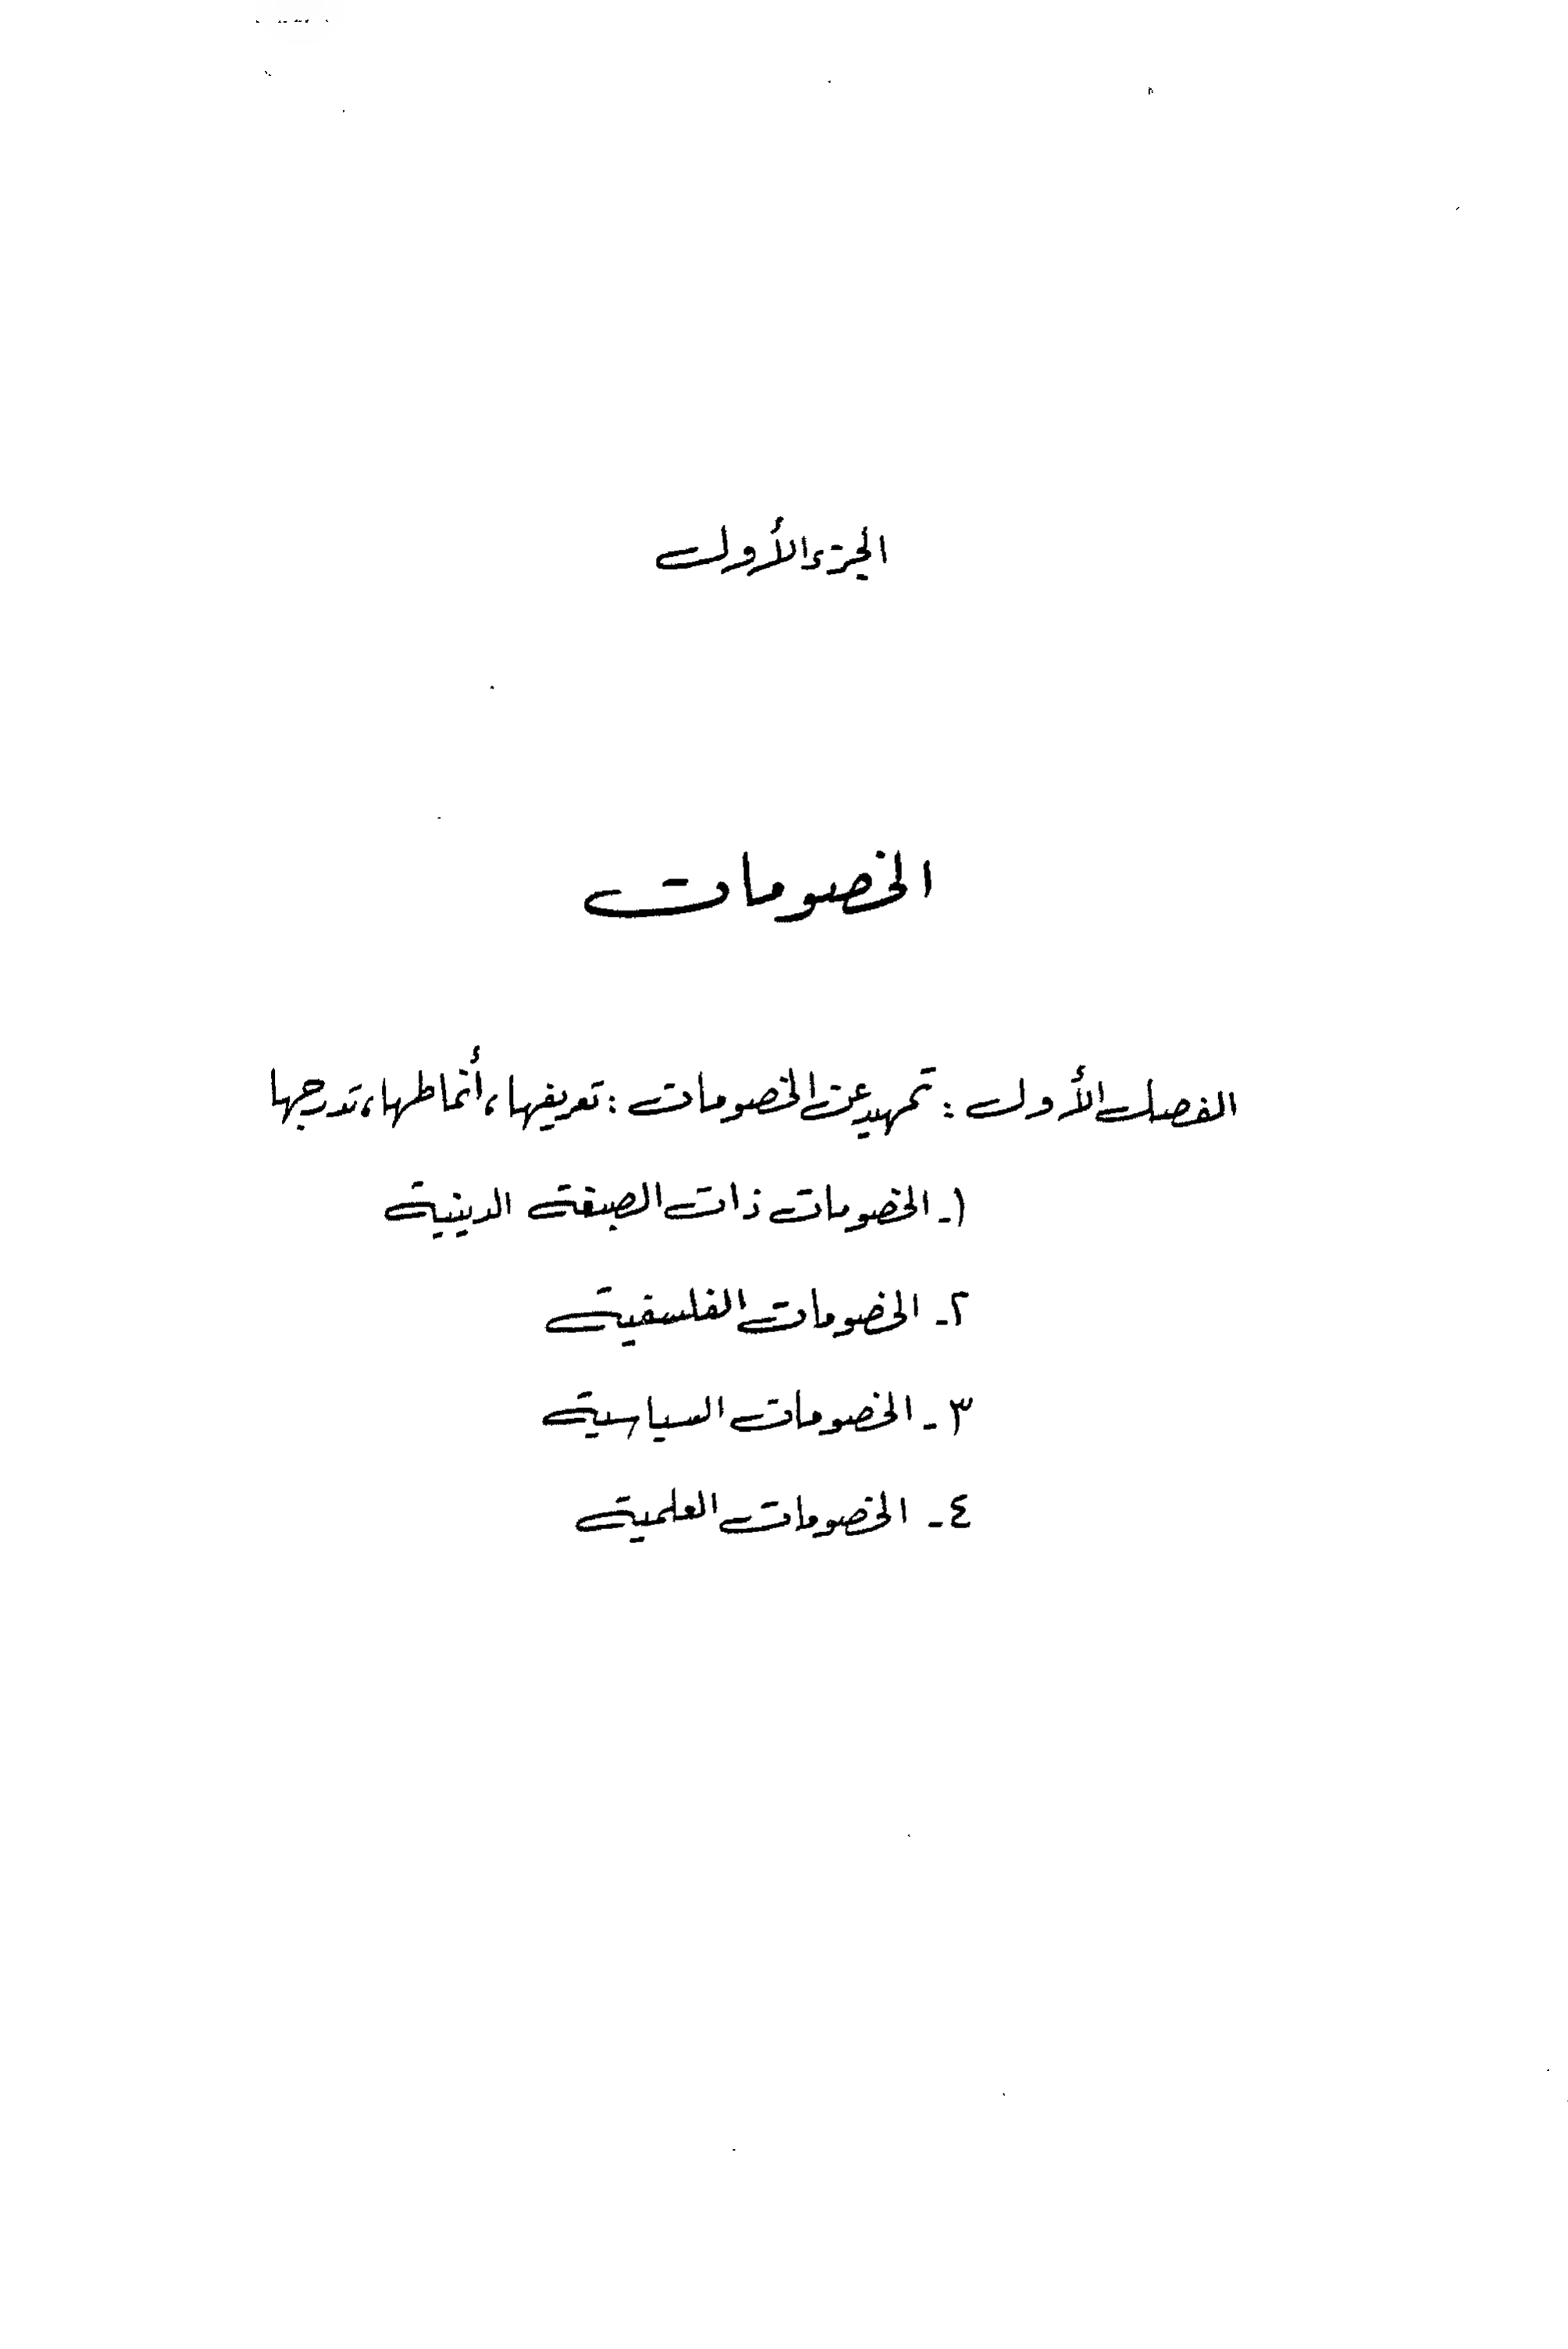 الجزء الأول
الخصومات
الفصل الأول : تمهيد عن الخصومات : تعريفها، أنماطها، تدرجها
١- الخصومات ذات الصبغة الدينية
٢- الخصومات الفلسفية
٣- الخصومات السياسية
٤- الخصومات العلمية